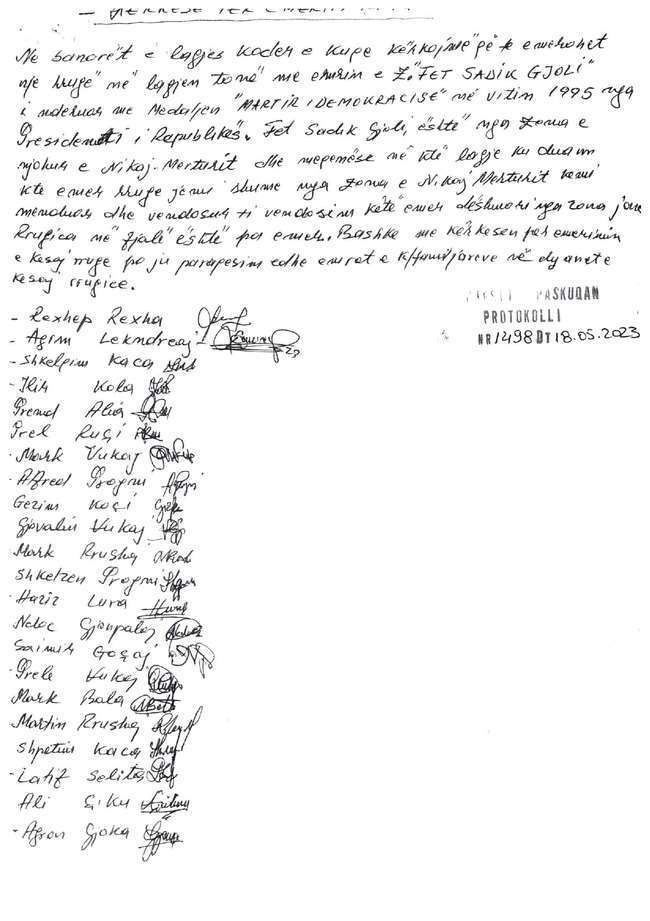 - KËRKESË PËR EMËRIM
Ne banorët e lagjes Koder e Kupe kërkojmë që të emërohet
një rrugë në lagjen tonë me emrin e Z. "FET SADIK GJOLI"
i nderuar me Medaljen "MARTIR I DEMOKRACISË" në vitin 1995 nga
Presidenti i Republikës. Fet Sadik Gjoli, është nga zona e
njohur e Nikaj-Merturit dhe meqenëse në këtë lagje ku duam
këtë emer rruge jemi shumë nga zona e Nikaj Merturit kemi
menduar dhe vendosur ti vendosim këtë emer dëshmori nga zona jonë
Rrugica në fjalë është pa emer. Bashkë me kërkesën për emerimin
e kesaj rruge po ju parapesim edhe emrat e kfamiljareve në dy anët e
kesaj rrugice.
PASKUQAN
PROTOKOLLI
NR 1498 DT 18.05.2023
- Rexhep Rexha
- Agim Lekndreaj
- Shkelqim Kaca
- Ilir Kola
Prend Alia
Prel Ruçi
- Mark Vukaj
- Alfred Progni
Gezim Koçi
Gjovalin Vukaj
Mark Rrushaj
Shkelzen Progni
- Haziz Lura
Ndoc Gjonpalaj
Saimir Goçaj
- Prele Vukaj
Mark Bala
Martin Rrushaj
Shpetim Kaca
- Latif Selita
Ali Çiku
- Agron Gjoka